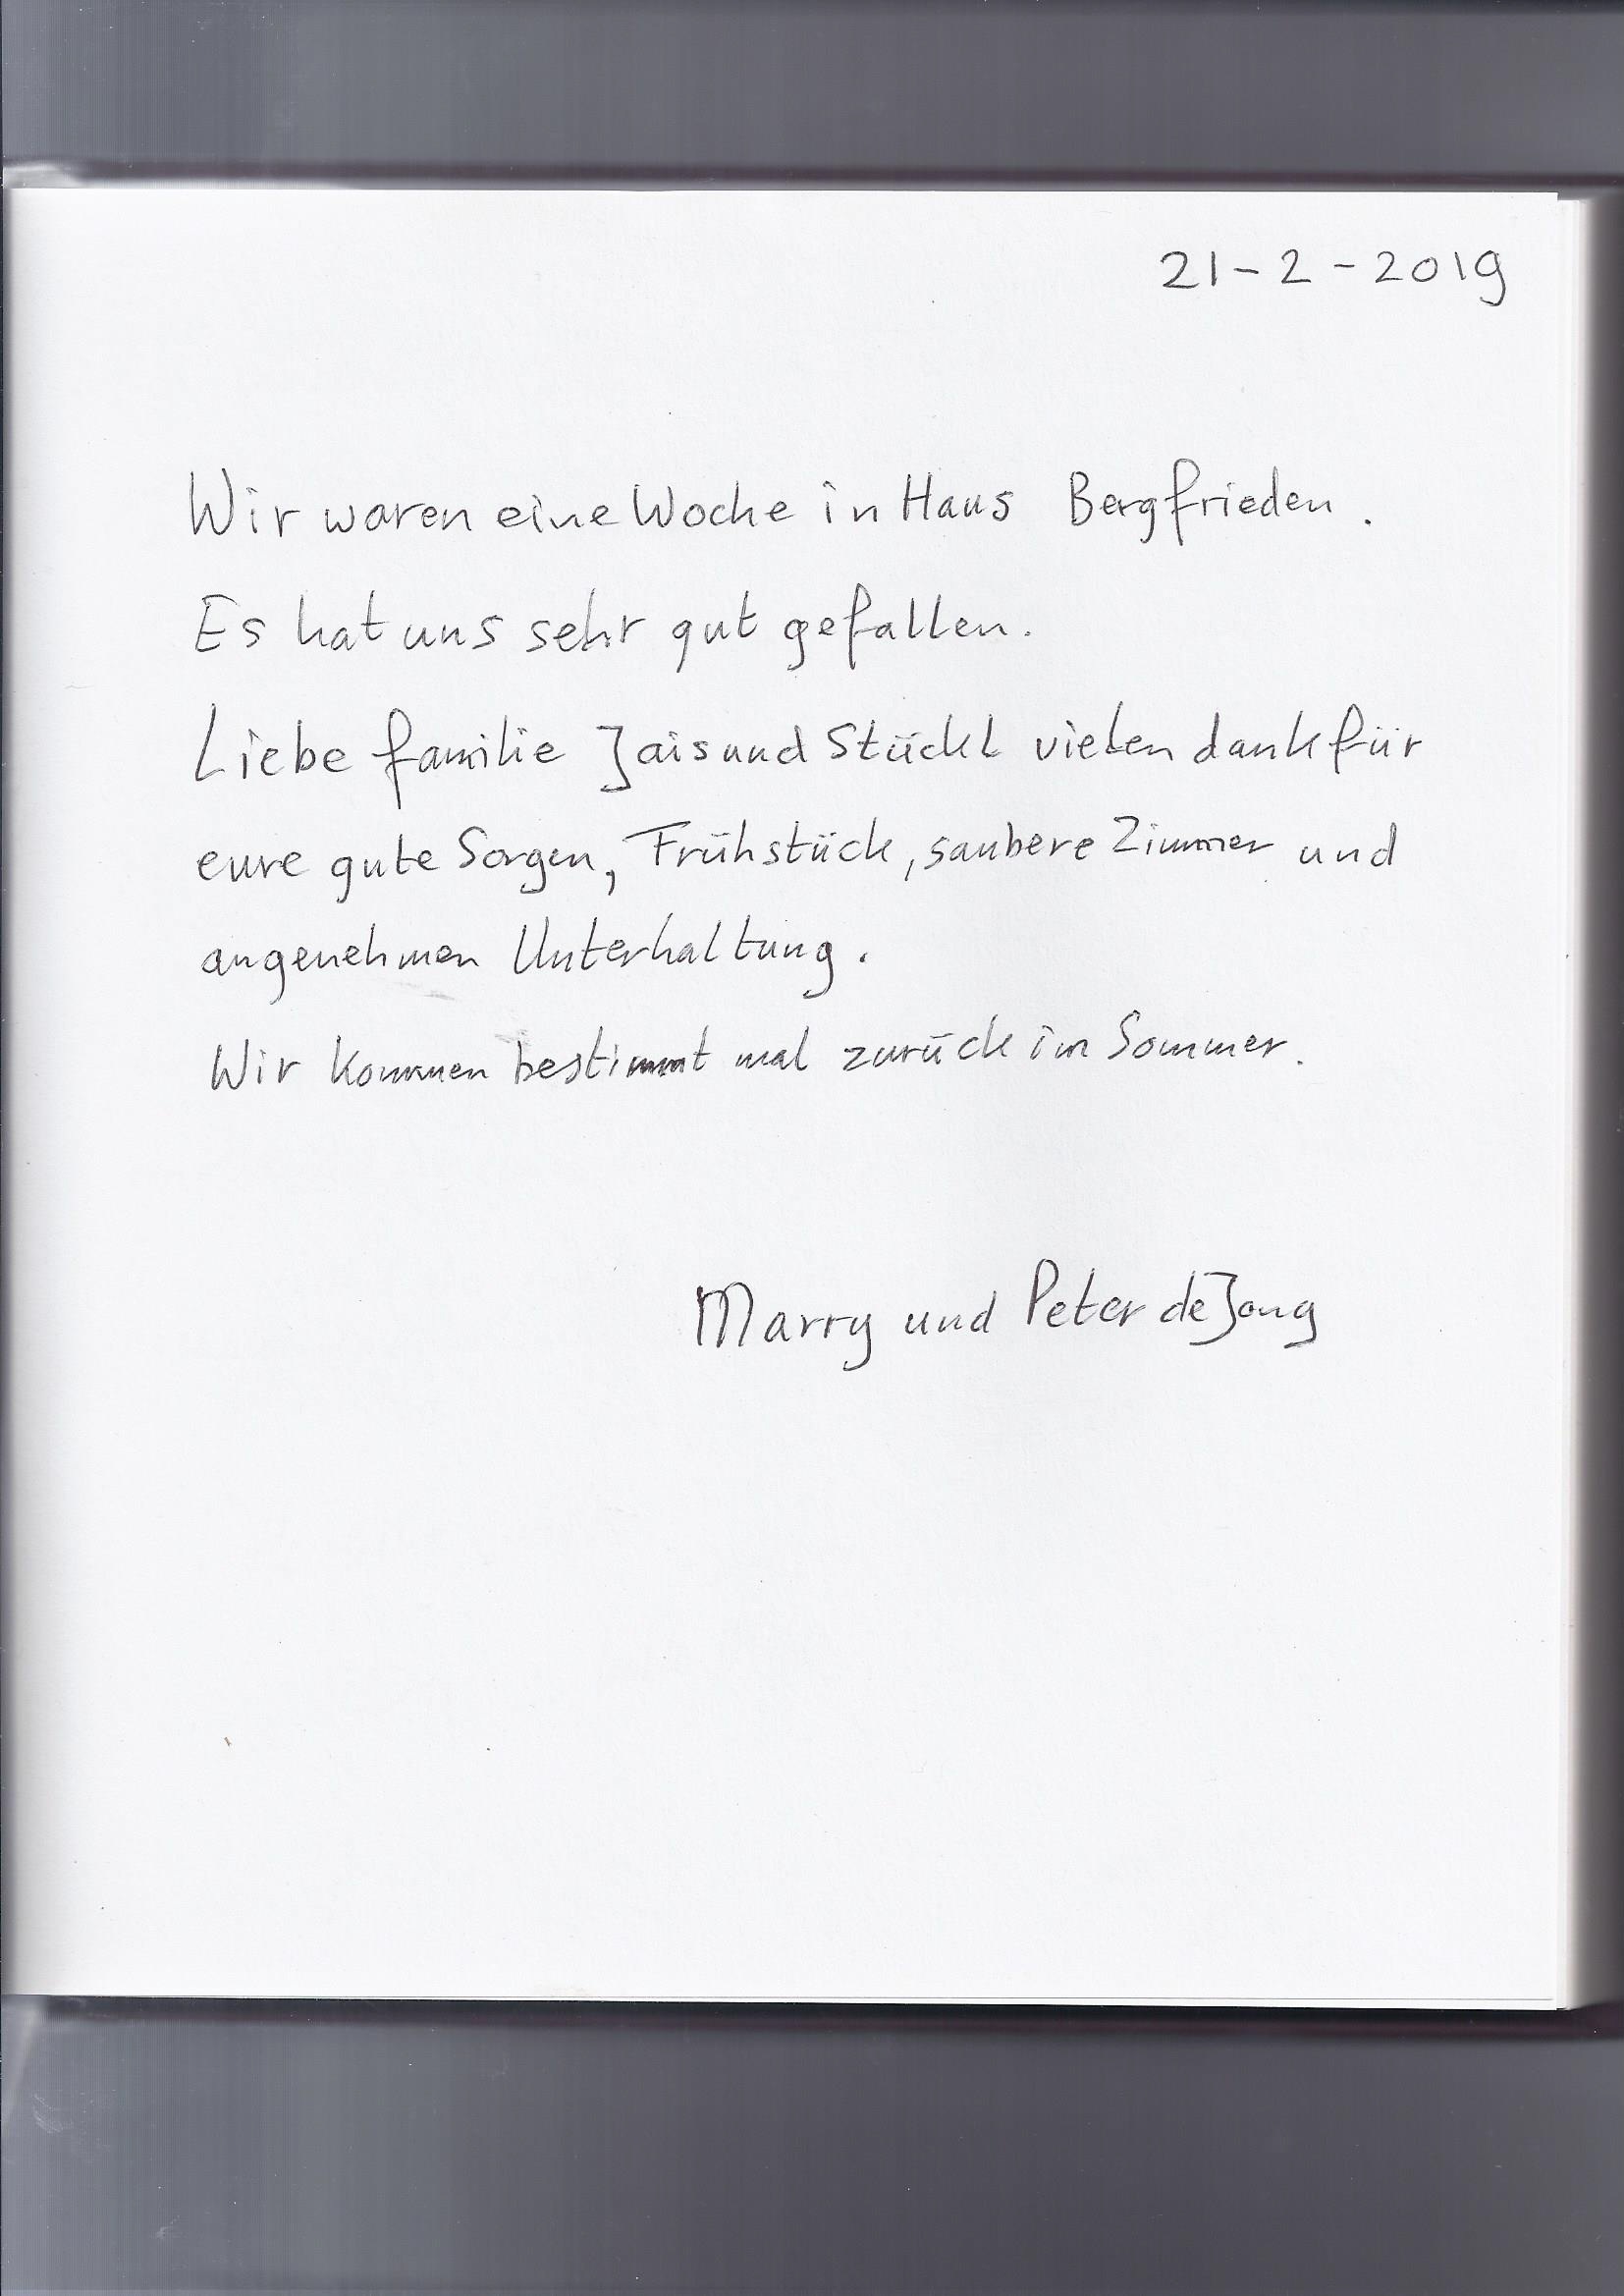 21-2-2019
Wir waren eine Woche in Haus Bergfrieden.
Es hat uns sehr gut gefallen.
Liebe familie Jais und Stückl vielen dank für
eure gute Sorgen, Frühstück, saubere Zimmer und
angenehmen Unterhaltung.
Wir kommen bestimmt mal zurück im Sommer.
Marry und Peter de Jong